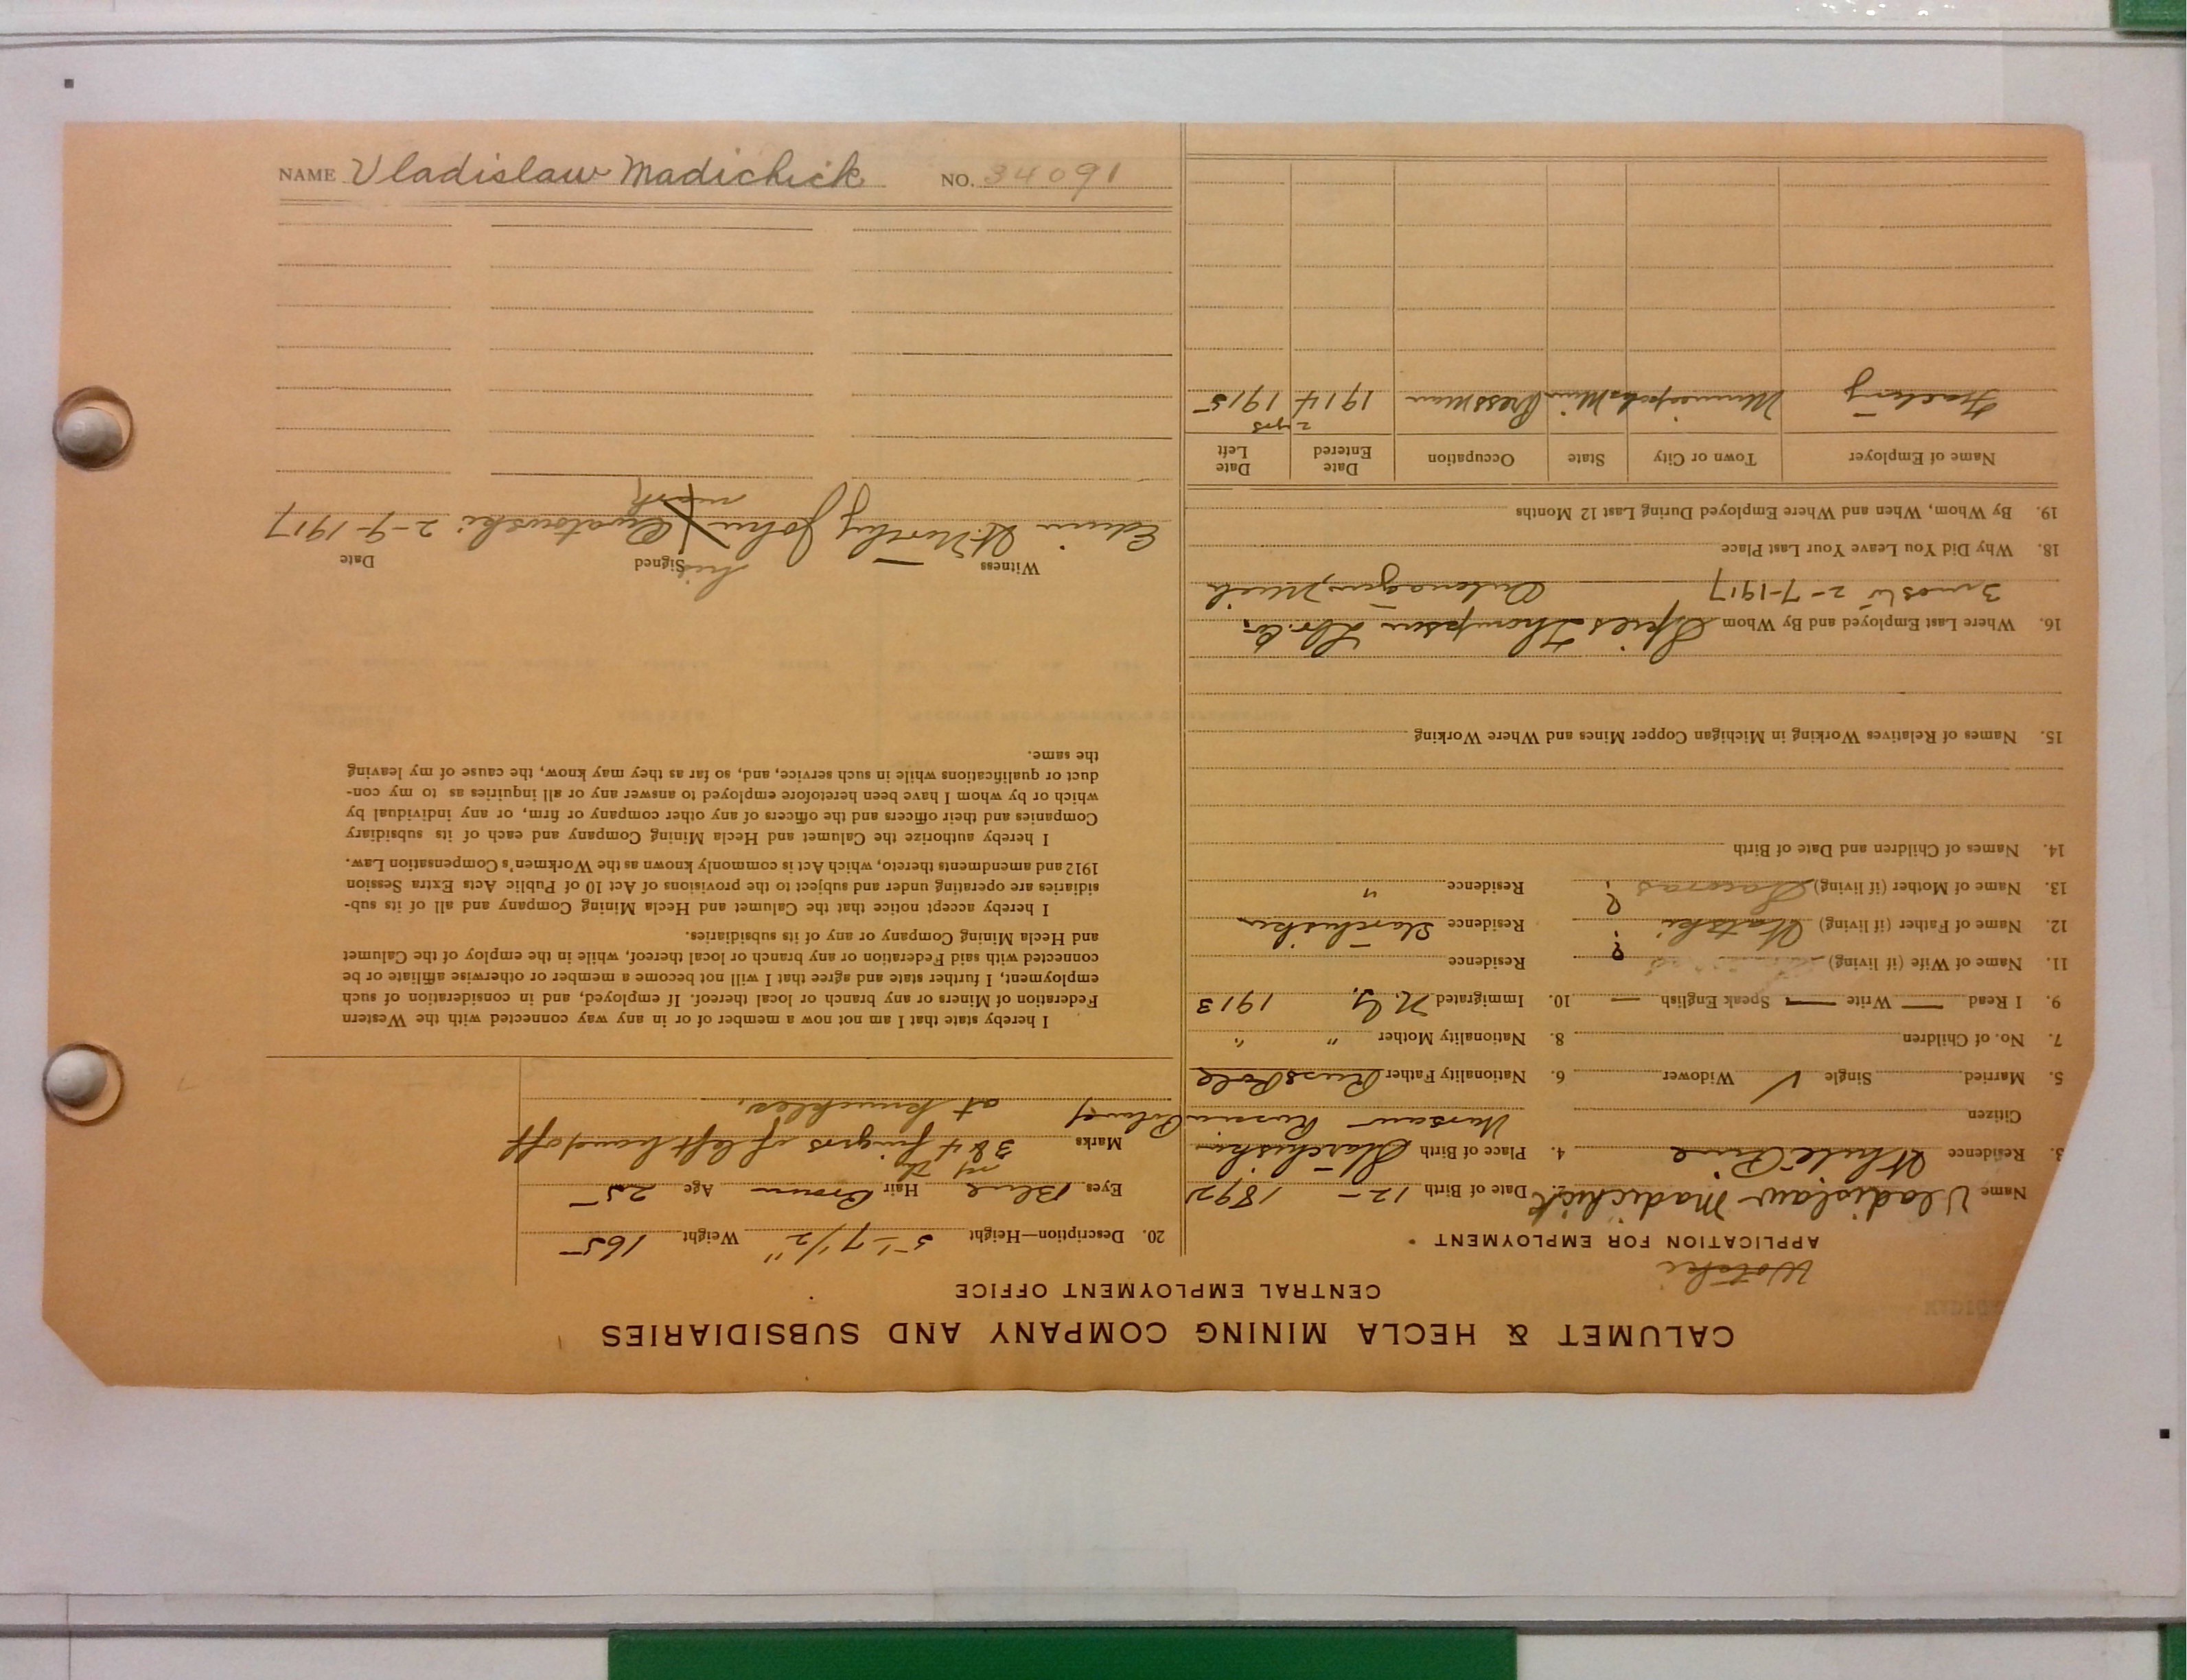 NAME Vladislaw Madichick NO. 34091
CALUMET & HECLA MINING COMPANY AND SUBSIDIARIES
CENTRAL EMPLOYMENT OFFICE
Wotski
APPLICATION FOR EMPLOYMENT
Name Vladislaw Madichick 2. Date of Birth 12 - 1892
3. Residence White Pine 4. Place of Birth
Citizen Warsaw Russia Poland
5. Married Single ✓ Widower 6. Nationality Father Russ Pole
7. No. of Children 8. Nationality Mother " "
9. I Read — Write — Speak English — 10. Immigrated N.Y. 1913
11. Name of Wife (if living) ? Residence
12. Name of Father (if living) ? Residence
13. Name of Mother (if living) ? Residence "
14. Names of Children and Date of Birth
15. Names of Relatives Working in Michigan Copper Mines and Where Working
16. Where Last Employed and By Whom Spies Thompson Lbr. Co.
3 mos to 2-7-1917 Ontonagon, Mich
18. Why Did You Leave Your Last Place
19. By Whom, When and Where Employed During Last 12 Months
Name of Employer Town or City State Occupation Date Entered Date Left
2 yrs
Factory Minneapolis Minn Pressman 1914 1915
20. Description—Height 5'-7 1/2" Weight 165
Eyes Blue Hair Brown Age 25
Marks 3 & 4 fingers of left hand off
at knuckles.
I hereby state that I am not now a member of or in any way connected with the Western
Federation of Miners or any branch or local thereof. If employed, and in consideration of such
employment, I further state and agree that I will not become a member or otherwise affiliate or be
connected with said Federation or any branch or local thereof, while in the employ of the Calumet
and Hecla Mining Company or any of its subsidiaries.
I hereby accept notice that the Calumet and Hecla Mining Company and all of its sub-
sidiaries are operating under and subject to the provisions of Act 10 of Public Acts Extra Session
1912 and amendments thereto, which Act is commonly known as the Workmen's Compensation Law.
I hereby authorize the Calumet and Hecla Mining Company and each of its subsidiary
Companies and their officers and the officers of any other company or firm, or any individual by
which or by whom I have been heretofore employed to answer any or all inquiries as to my con-
duct or qualifications while in such service, and, so far as they may know, the cause of my leaving
the same.
Witness Signed Date
his
Edwin John X 2-9-1917
mark